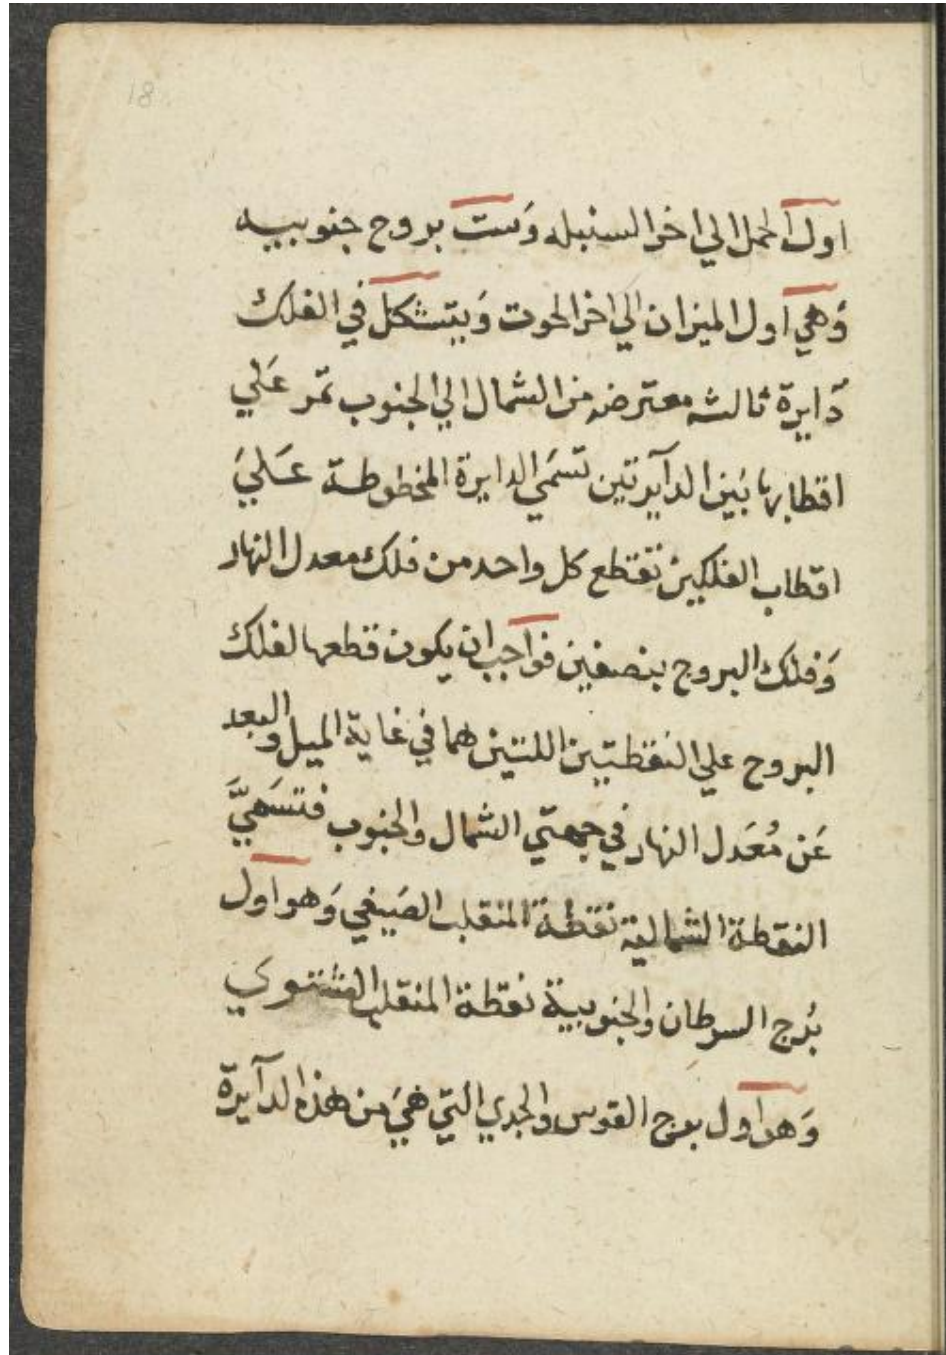 18
اول الحمل الي اخر السنبله وَست بروج جنوبيه
وَهي اول الميزان الي اخر الحوت وَيتشكل في الفلك
دَايرة ثالثه معترضه من الشمال الي الجنوب تمر عَلي
اقطابها بَين الدآيرتين تسَمَي الدايرة المخطوطة عَــلَيَ
اقطاب الفلكين تقتطع كل واحد من فلك معدل النهار
وَفلك البروج بنصفين فواجب ان يكون قطعها لفلك
البروج علي النقطتين اللتين هما في غاية الميل والبعد
عَن مُعَدل النهار في جهتي الشمال والجنوب فتسَميَّ
النقطة الشمالية نقطة المنقلب الصَيفي وَهو اول
بُرج السرطان والجنوبية نقطة المنقلب الشتوي
وَهو اول برج القوس والجدي التي هيَ من هذه الدآيرة